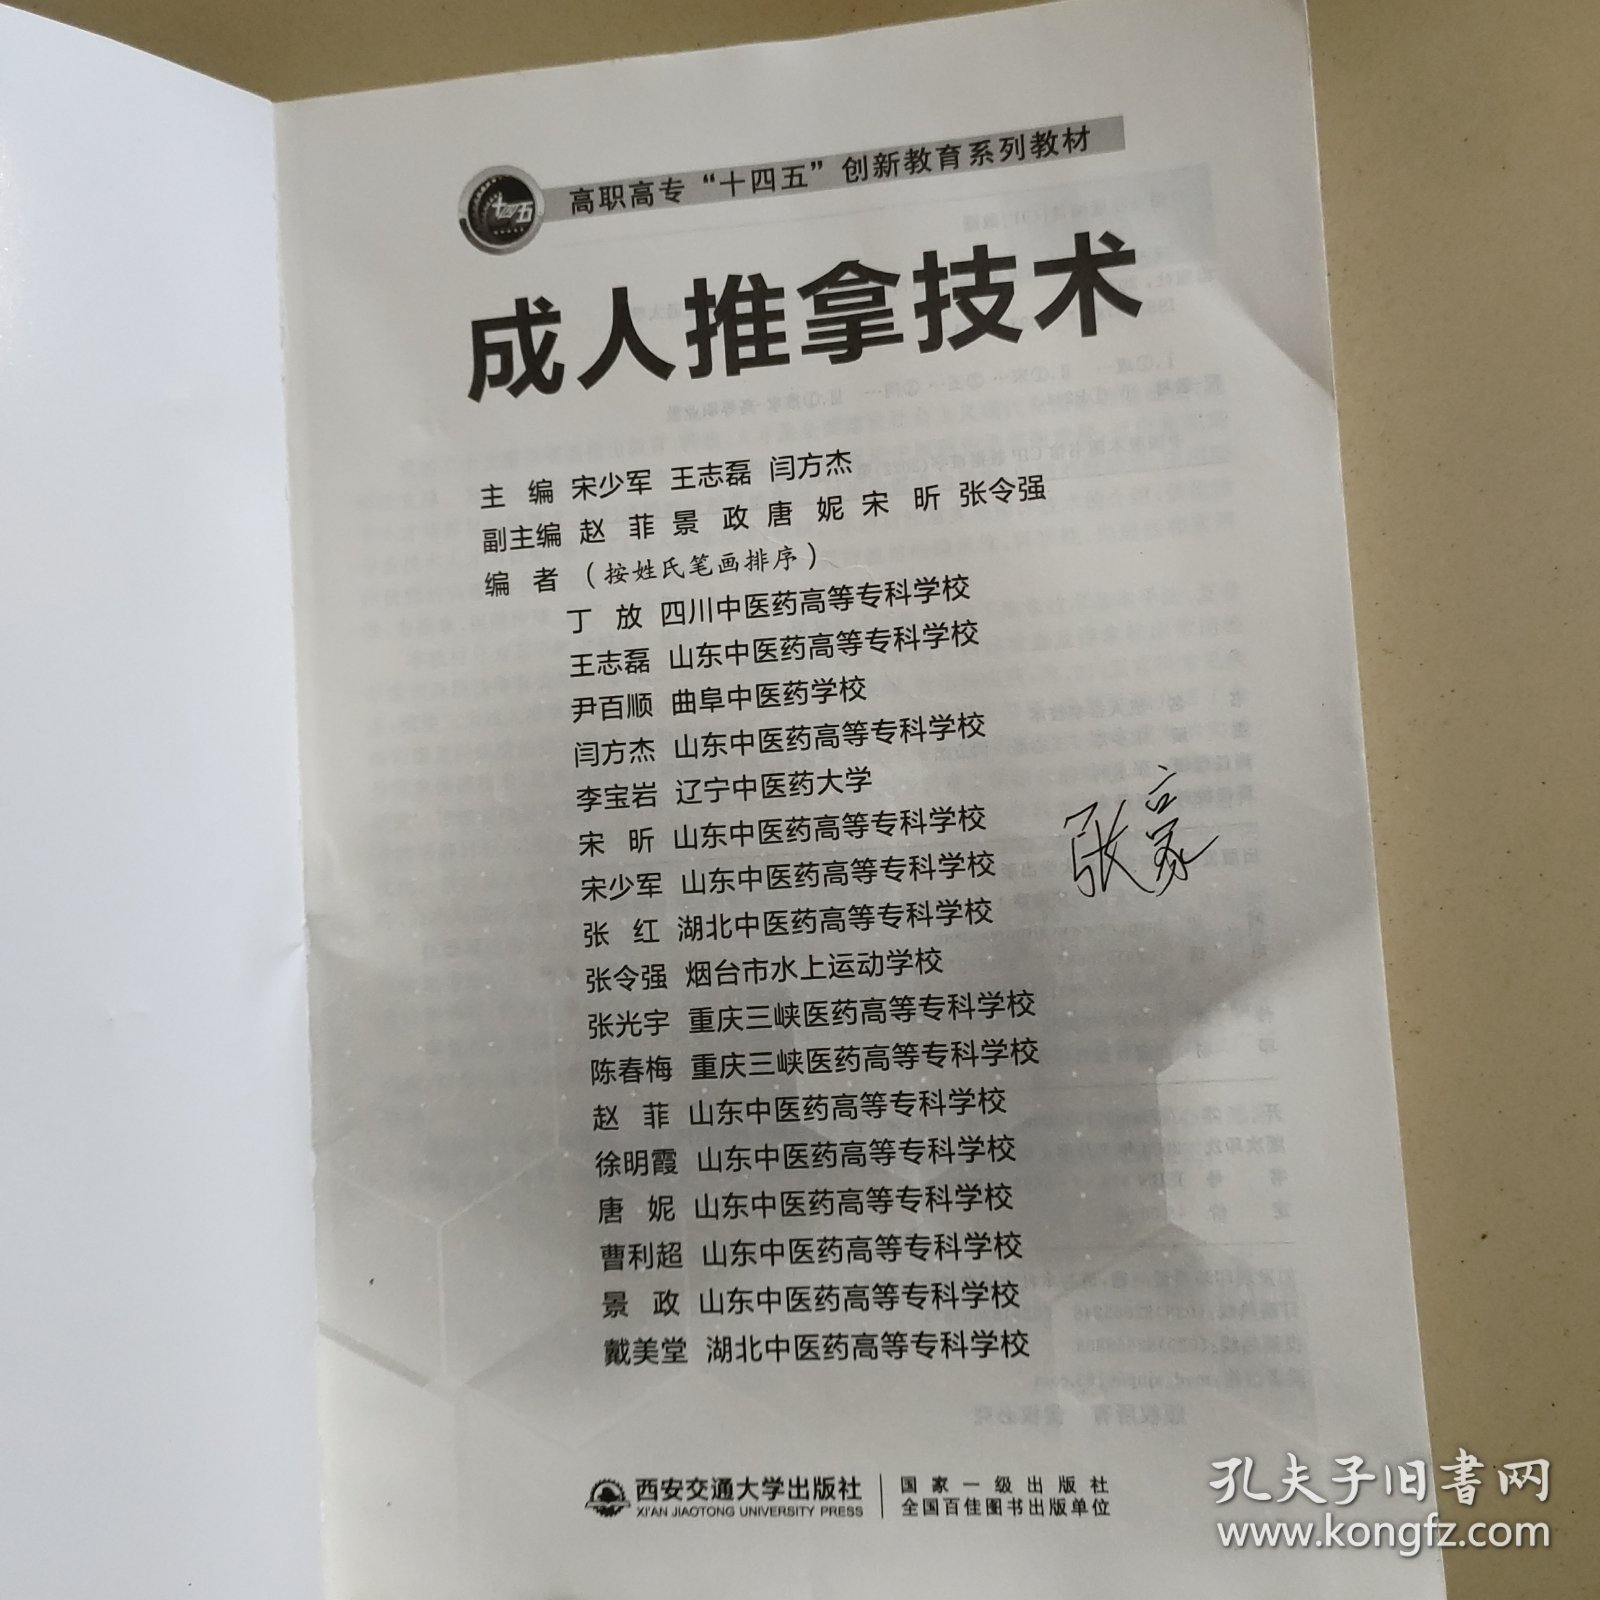 高职高专“十四五”创新教育系列教材
十四五
成人推拿技术
主 编 宋少军 王志磊 闫方杰
副主编 赵 菲 景 政 唐 妮 宋 昕 张令强
编 者 （按姓氏笔画排序）
丁 放 四川中医药高等专科学校
王志磊 山东中医药高等专科学校
尹百顺 曲阜中医药学校
闫方杰 山东中医药高等专科学校
李宝岩 辽宁中医药大学
宋 昕 山东中医药高等专科学校
宋少军 山东中医药高等专科学校
张 红 湖北中医药高等专科学校
张令强 烟台市水上运动学校
张光宇 重庆三峡医药高等专科学校
陈春梅 重庆三峡医药高等专科学校
赵 菲 山东中医药高等专科学校
徐明霞 山东中医药高等专科学校
唐 妮 山东中医药高等专科学校
曹利超 山东中医药高等专科学校
景 政 山东中医药高等专科学校
戴美堂 湖北中医药高等专科学校
西安交通大学出版社
XI'AN JIAOTONG UNIVERSITY PRESS
国家一级出版社
全国百佳图书出版单位
孔夫子旧书网
www.kongfz.com